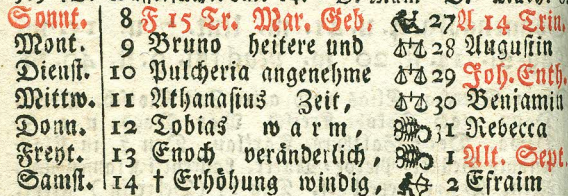 Sonnt. 8 F 15 Tr. Mar. Geb. 27 A 14 Trin.
Mont. 9 Bruno heitere und 28 Augustin
Dienst. 10 Pulcheria angenehme 29 Joh. Enth.
Mittw. 11 Athanasius Zeit, 30 Benjamin
Donn. 12 Tobias warm, 31 Rebecca
Freyt. 13 Enoch veränderlich, 1 Alt. Sept.
Samst. 14 † Erhöhung windig, 2 Efraim